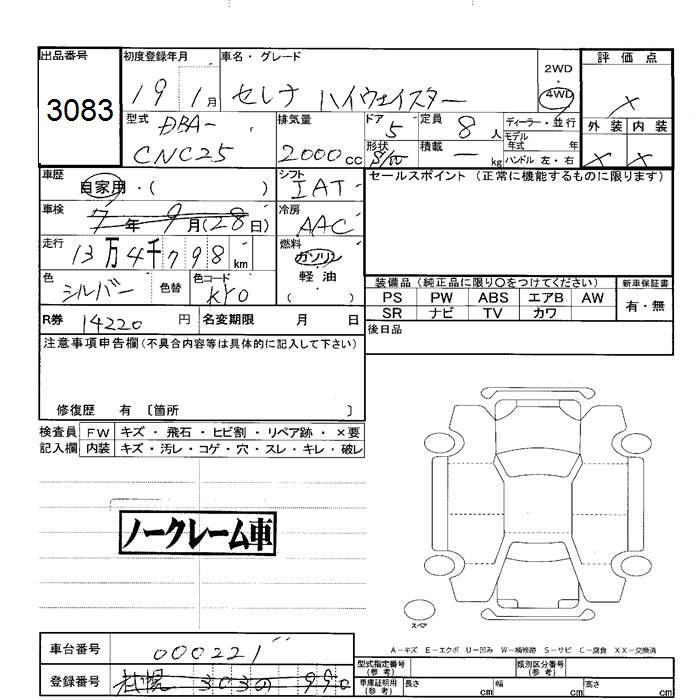 出品番号
3083
初度登録年月
19 1月
車名・グレード
セレナ ハイウェイスター
2WD
・
4WD
評価点
×
外装 内装
× ×
型式
DBA-
CNC25
排気量
2000cc
ドア
5
定員
8人
形状
S/W
積載
ー kg
ディーラー・並行
モデル年式 年
ハンドル 左・右
車歴
自家用・( )
シフト
IAT
セールスポイント (正常に機能するものに限ります)
車検
7年9月(28日)
冷房
AAC
走行
13万4千798km
燃料
ガソリン
軽油
( )
色
シルバー
色替
色コード
KY0
装備品 (純正品に限り〇をつけてください)
新車保証書
PS PW ABS エアB AW
SR ナビ TV カワ
有・無
R券 14220円
名変期限 月 日
後日品
注意事項申告欄(不具合内容等は具体的に記入して下さい)
修復歴 有 〔箇所 〕
検査員 FW キズ・飛石・ヒビ割・リペア跡・×要
記入欄 内装 キズ・汚レ・コゲ・穴・スレ・キレ・破レ
ノークレーム車
スペア
A-キズ E-エクボ U-凹み W-補修跡 S-サビ C-腐食 XX-交換済
車台番号
000221
登録番号
札幌 303の990
型式指定番号(参考)
類別区分番号(参考)
車庫証明用(参考)
長さ cm
幅 cm
高さ cm